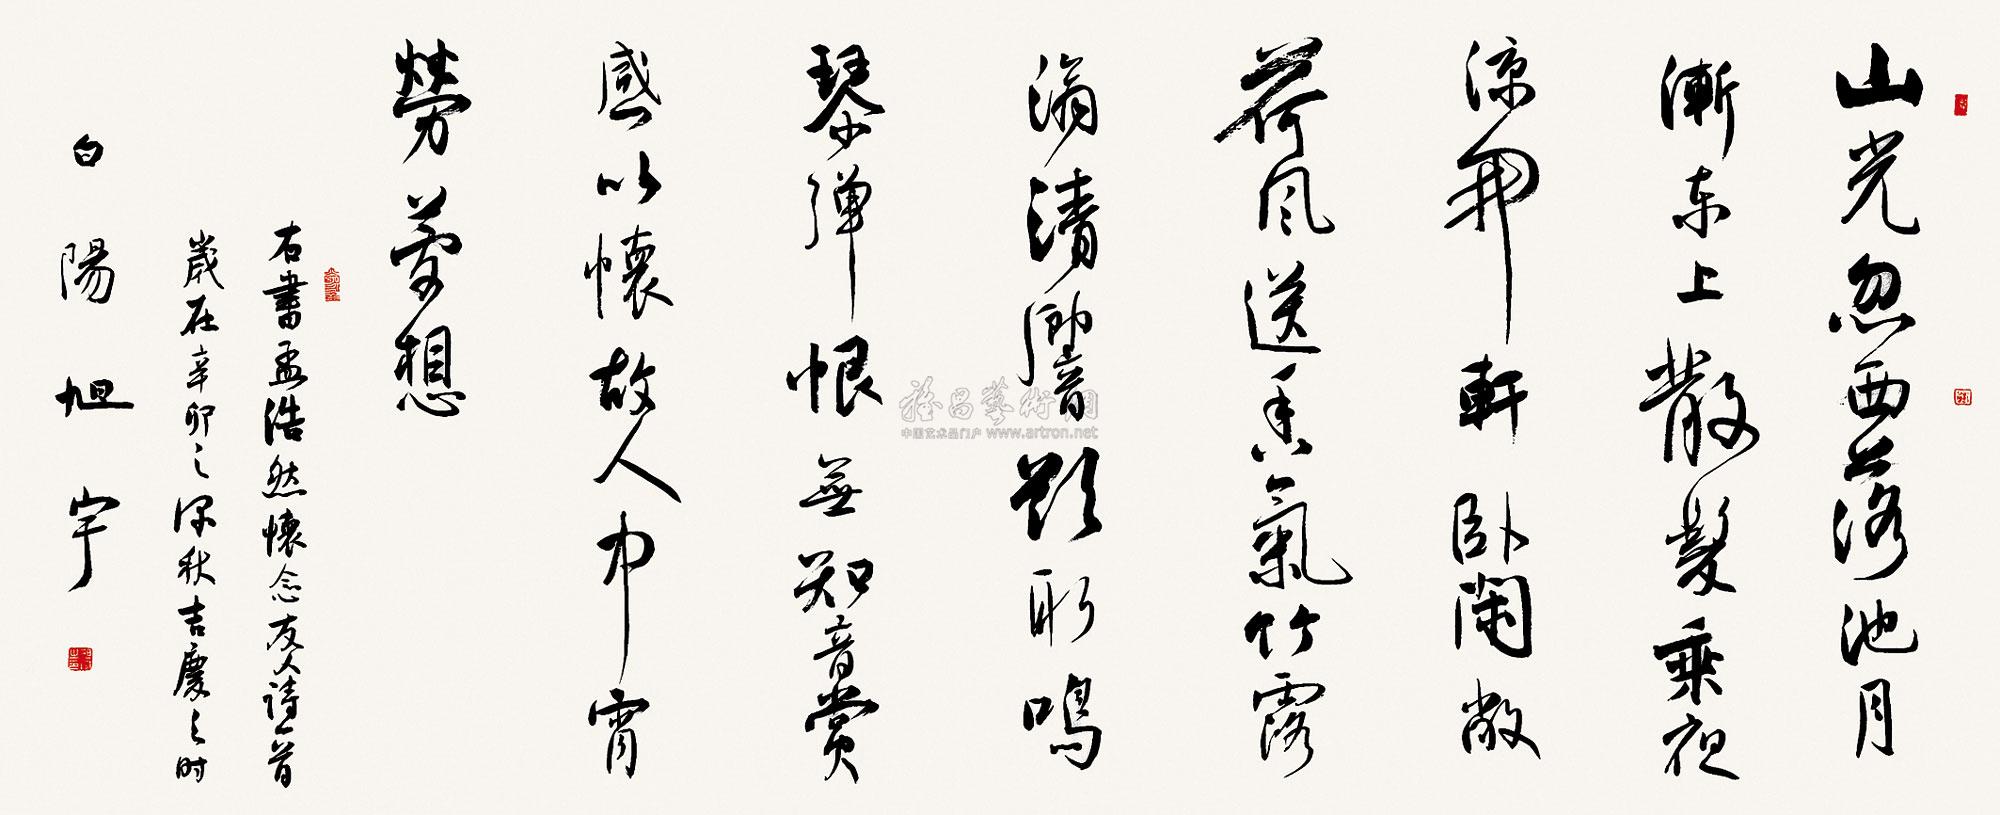 山光忽西落池月
漸东上散髮乘夜
涼開軒卧閑敞
荷风送香氣竹露
滴清響欲取鳴
琴弹恨無知音賞
感以懷故人中宵
勞夢想
右書孟浩然懷念友人詩一首
歲在辛卯之深秋吉慶之时
白陽旭宇
雅昌藝術网
中国艺术品门户 www.artron.net